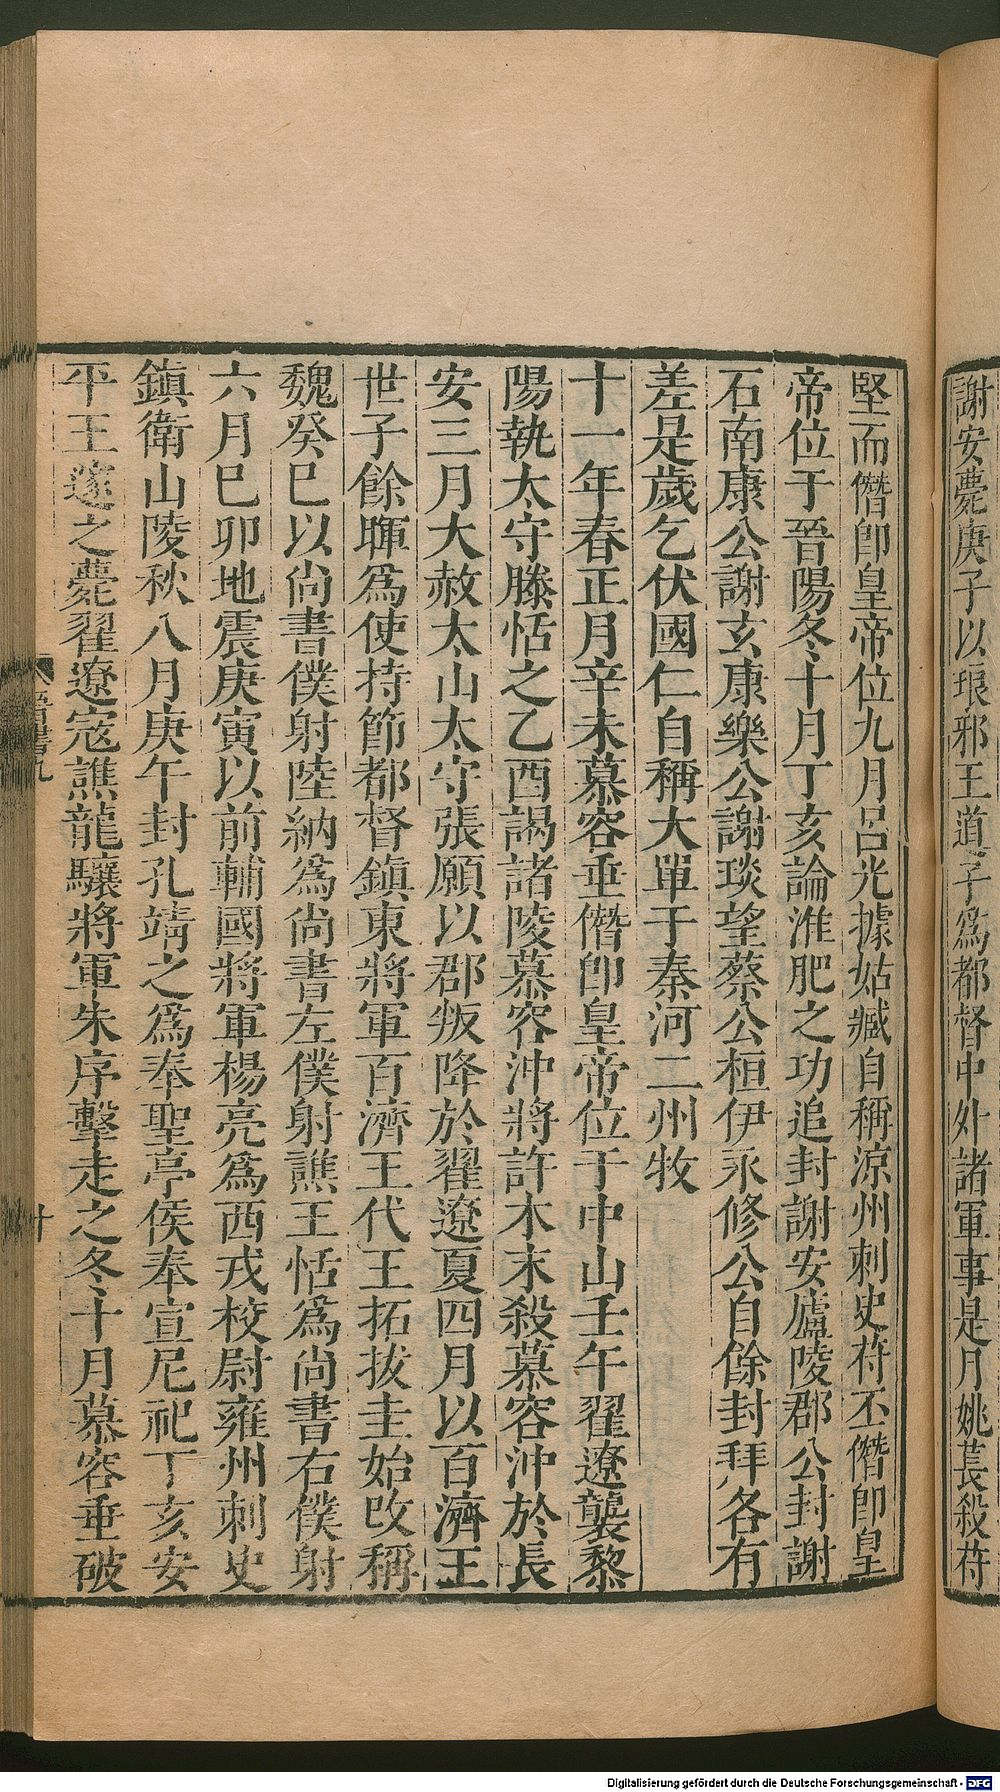 謝安薨庚子以琅邪王道子爲都督中外諸軍事是月姚萇殺苻
堅而僭卽皇帝位九月呂光據姑臧自稱涼州刺史苻丕僭卽皇
帝位于晉陽冬十月丁亥論淮肥之功追封謝安廬陵郡公封謝
石南康公謝玄康樂公謝琰望蔡公桓伊永修公自餘封拜各有
差是歲乞伏國仁自稱大單于秦河二州牧
十一年春正月辛未慕容垂僭卽皇帝位于中山壬午翟遼襲黎
陽執太守滕恬之乙酉謁諸陵慕容沖將許木末殺慕容沖於長
安三月大赦太山太守張願以郡叛降於翟遼夏四月以百濟王
世子餘暉爲使持節都督鎮東將軍百濟王代王拓拔圭始改稱
魏癸巳以尚書僕射陸納爲尚書左僕射譙王恬爲尚書右僕射
六月巳卯地震庚寅以前輔國將軍楊亮爲西戎校尉雍州刺史
鎮衛山陵秋八月庚午封孔靖之爲奉聖亭侯奉宣尼祀丁亥安
平王邃之薨翟遼寇譙龍驤將軍朱序擊走之冬十月慕容垂破
晉書九
十
Digitalisierung gefördert durch die Deutsche Forschungsgemeinschaft - DFG